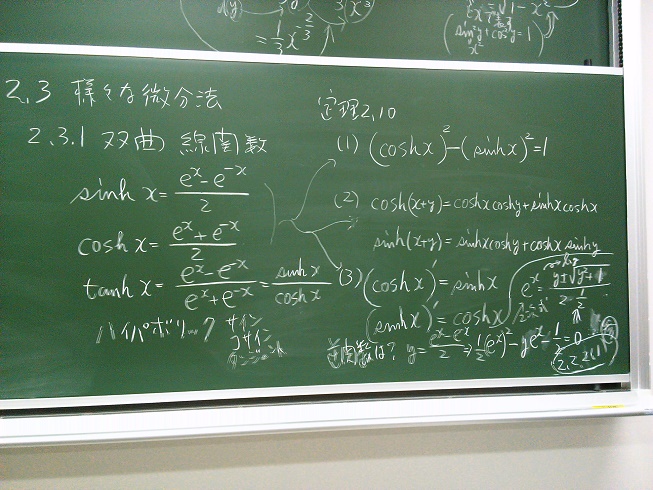 dy
= 1/3 x^(2/3)
√1-x²
(sin²y + cos²y = 1)
x²
2.3 様々な微分法
2.3.1 双曲線関数
sinh x = (e^x - e^-x)/2
cosh x = (e^x + e^-x)/2
tanh x = (e^x - e^-x)/(e^x + e^-x) = sinh x/cosh x
ハイパボリック サイン
コサイン
タンジェント
定理2.10
(1) (cosh x)² - (sinh x)² = 1
(2) cosh(x+y) = cosh x cosh y + sinh x cosh x
sinh(x+y) = sinh x cosh y + cosh x sinh y
(3) (cosh x)' = sinh x
(sinh x)' = cosh x
逆関数は? y = (e^x - e^-x)/2 ⇒ 1/2(e^x)² - ye^x - 1/2 = 0
e^x = (y ± √y²+1)/(2·1/2)